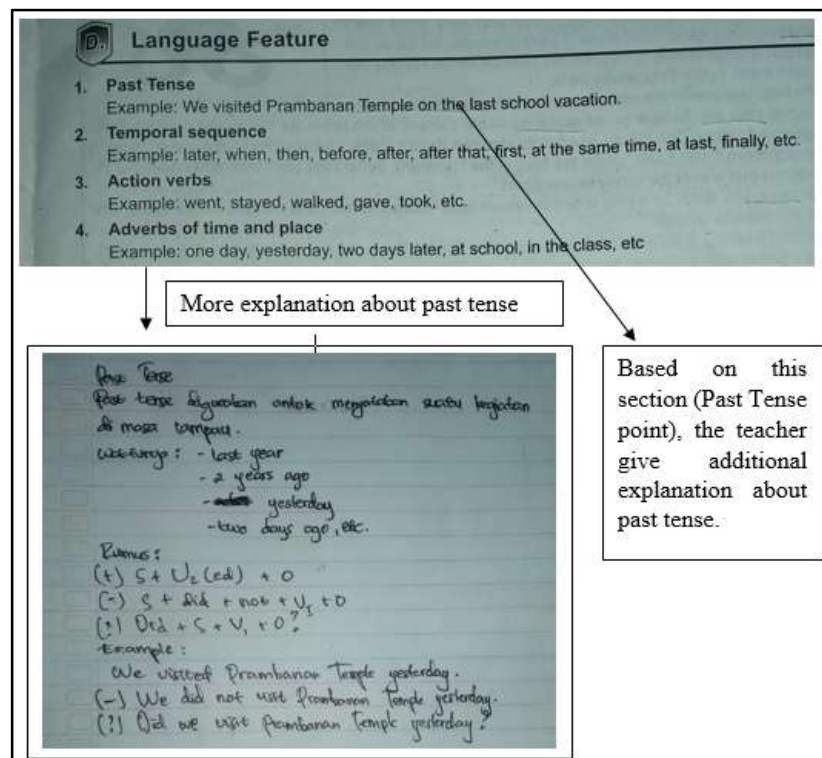 D. Language Feature
1. Past Tense
Example: We visited Prambanan Temple on the last school vacation.
2. Temporal sequence
Example: later, when, then, before, after, after that, first, at the same time, at last, finally, etc.
3. Action verbs
Example: went, stayed, walked, gave, took, etc.
4. Adverbs of time and place
Example: one day, yesterday, two days later, at school, in the class, etc
More explanation about past tense
Past Tense
Past tense digunakan untuk menyatakan suatu kegiatan
di masa lampau.
Waktunya : - last year
- 2 years ago
- yesterday
- two days ago, etc.
Rumus :
(+) S + V2 (ed) + O
(-) S + did + not + V1 + O
(?) Did + S + V1 + O?
Example :
We visited Prambanan Temple yesterday.
(-) We did not visit Prambanan Temple yesterday.
(?) Did we visit Prambanan Temple yesterday?
Based on this
section (Past Tense
point), the teacher
give additional
explanation about
past tense.